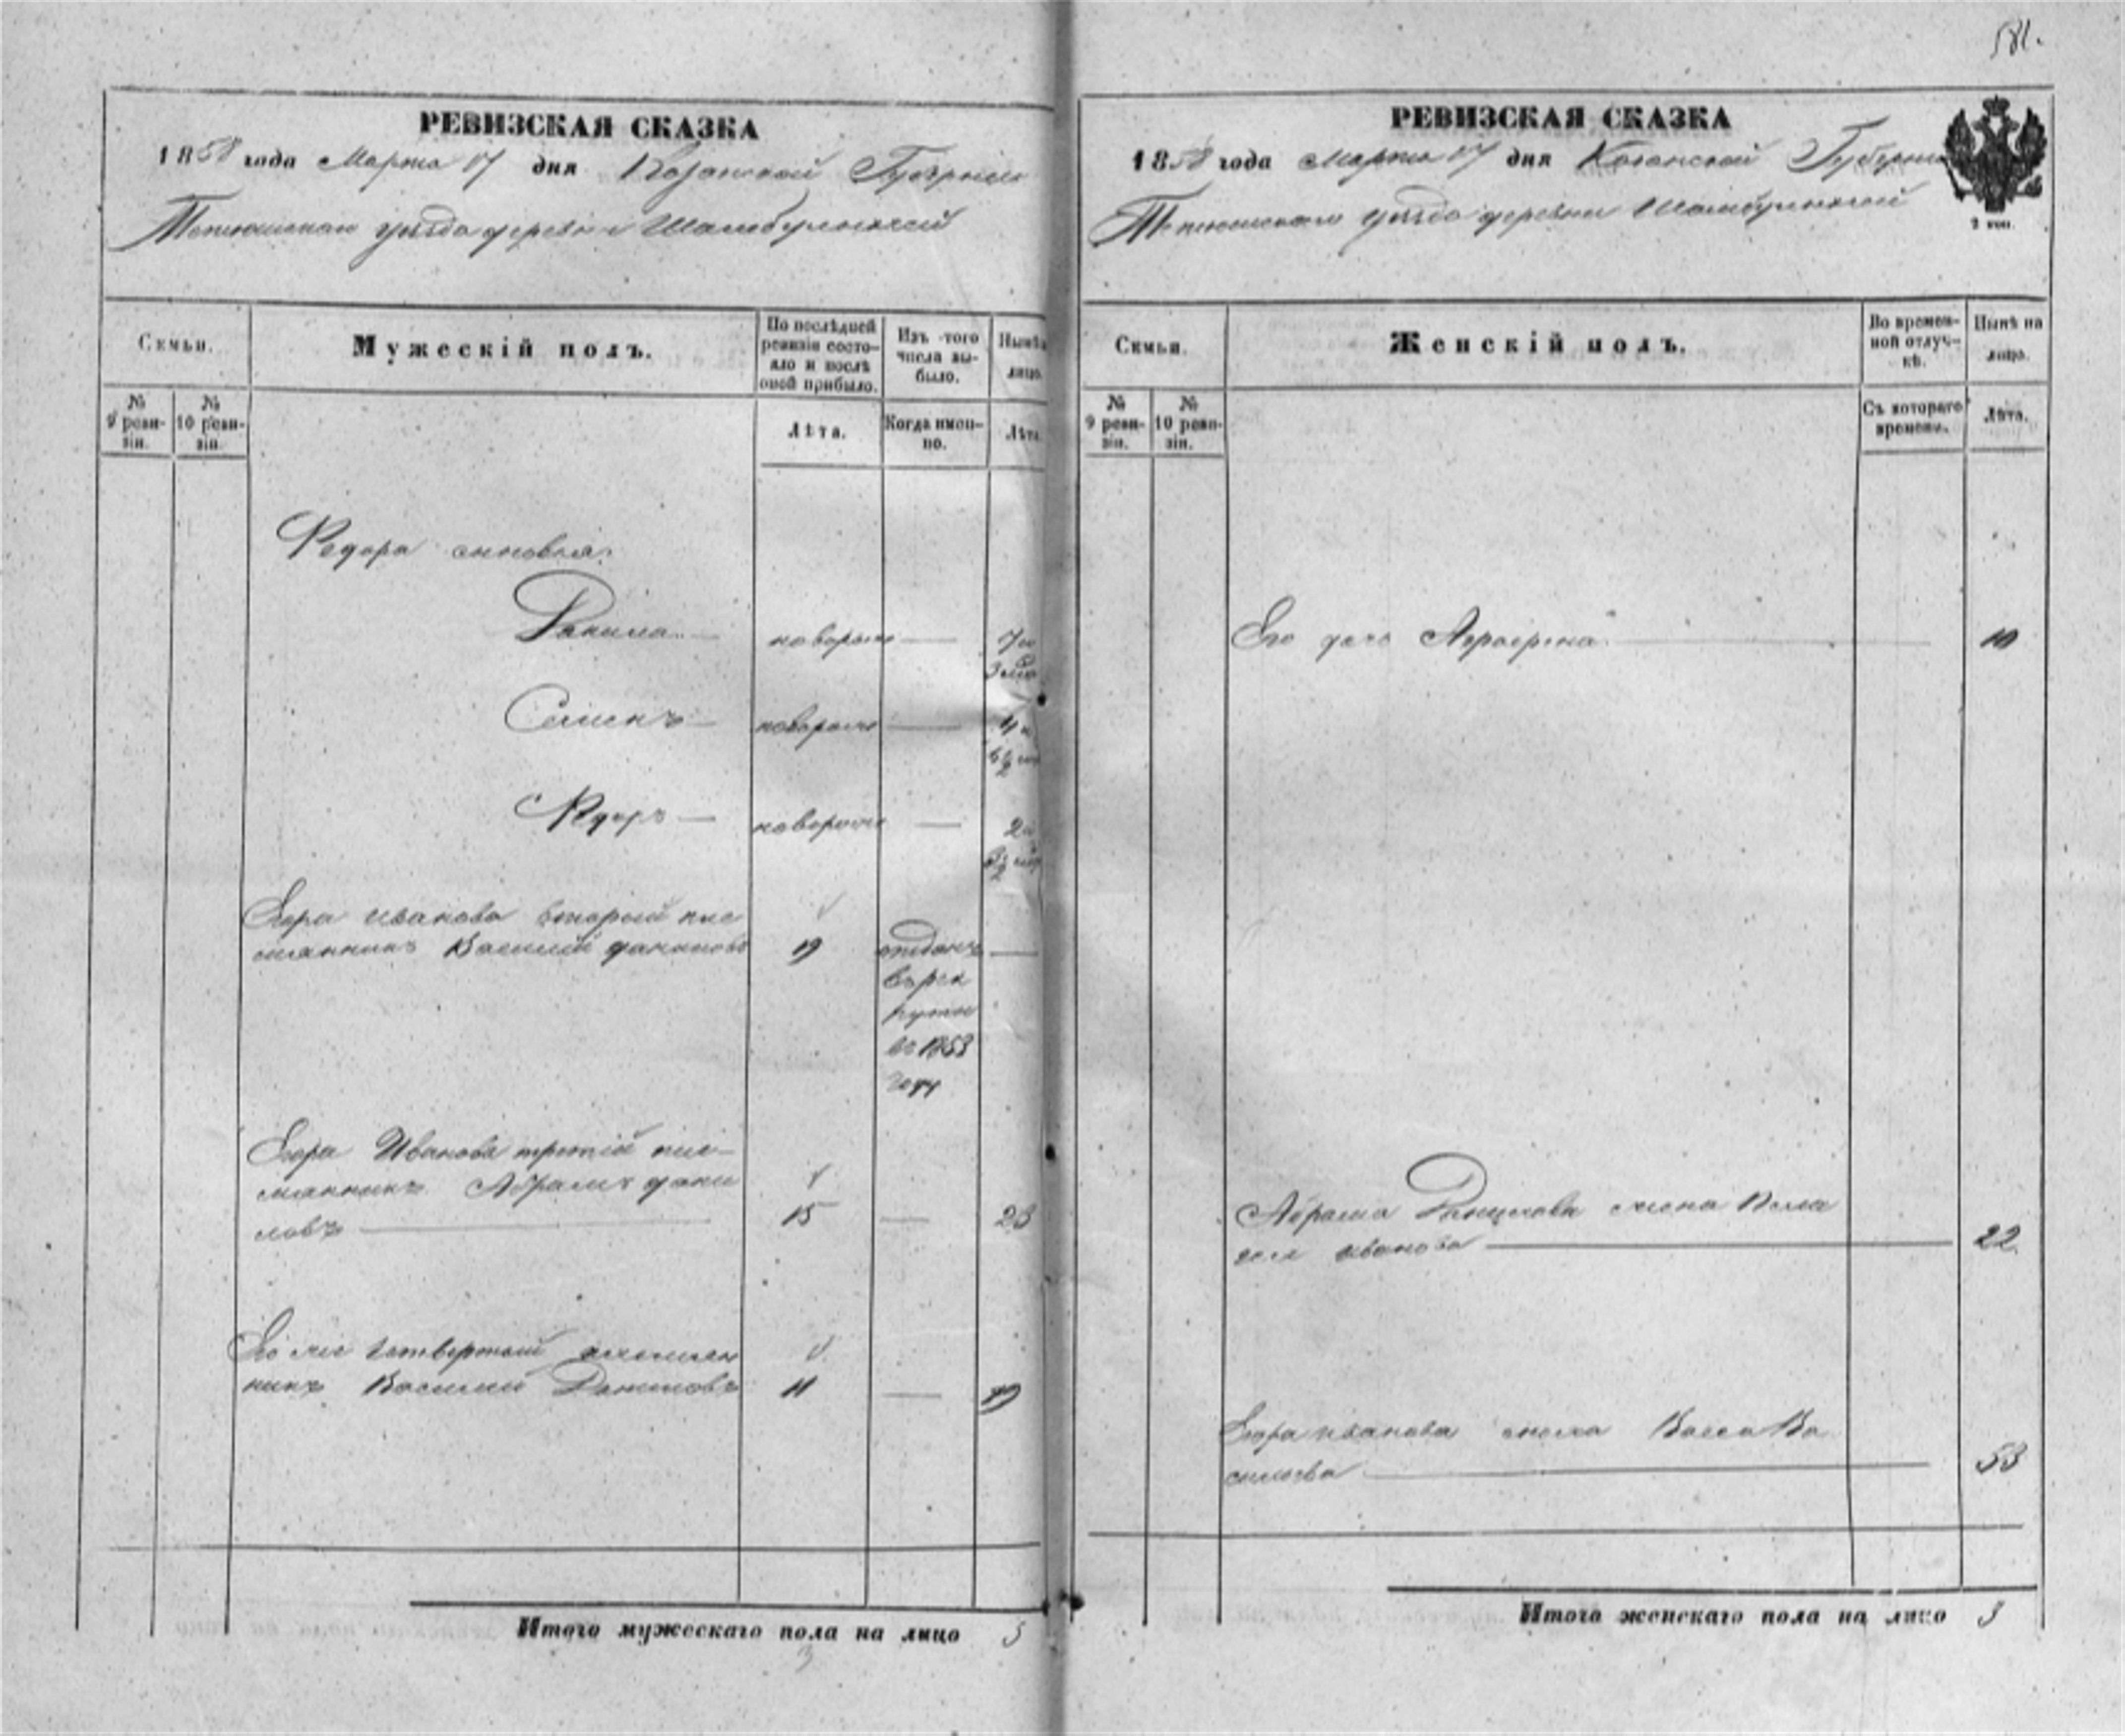 581.
РЕВИЗСКАЯ СКАЗКА
1858 года Марта 17 дня Казанской Губернии
Тетюшскаго уѣзда деревни Шамбулыхчей
Семьи.
Мужескій полъ.
По послѣдней ревизіи состояло и послѣ оной прибыло.
Изъ того числа выбыло.
Нынѣ лицо.
№ 9 ревизіи.
№ 10 ревизіи.
Лѣта.
Когда именно.
Лѣта
Федора сыновья:
Данила новорож 7 и 3 мѣ
Семенъ новорож 4 и 6½ мѣ
Федоръ новорож 2 и
Егора Иванова второй пле
мянникъ Василій Даниловъ 19 отданъ
въ рек
руты
въ 1853
году
Егора Иванова третій пле-
мянникъ Абрамъ Дани
ловъ 15 23
Его же четвертый племян
никъ Василій Даниловъ 11 19
Итого мужескаго пола на лицо 5
3
РЕВИЗСКАЯ СКАЗКА
1858 года Марта 17 дня Казанской Губерніи
Тетюшскаго уѣзда деревни Шамбулыхчей
2 коп.
Семьи.
Женскій полъ.
Во временной отлучкѣ.
Нынѣ на лицо.
№ 9 ревизіи.
№ 10 ревизіи.
Съ котораго времени.
Лѣта.
Его дочь Аграфена 10
Абрама Данилова жена Пела
гея Иванова 22
Егора Иванова жена Васса Ва
сильева 53
Итого женскаго пола на лицо 3